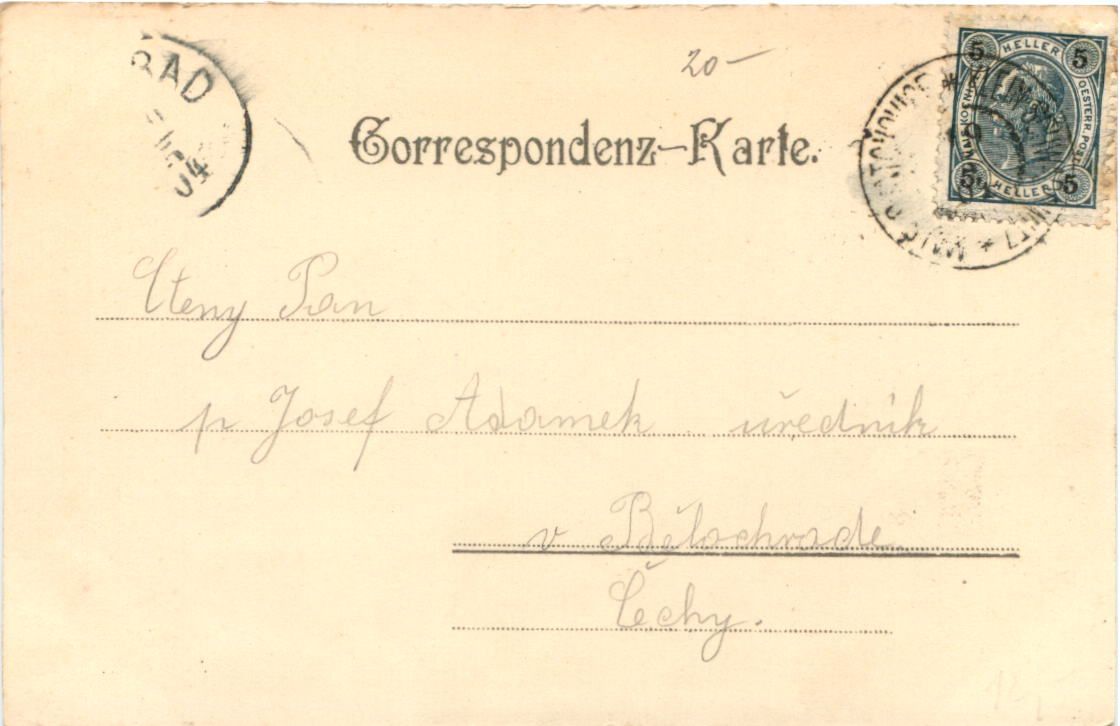 BAD
04
20–
Correspondenz-Karte.
5 HELLER 5
OESTERR. POST
5 HELLER 5
Cteny Pan
p Josef Adamek uředník
v Bělochrade
Čechy.